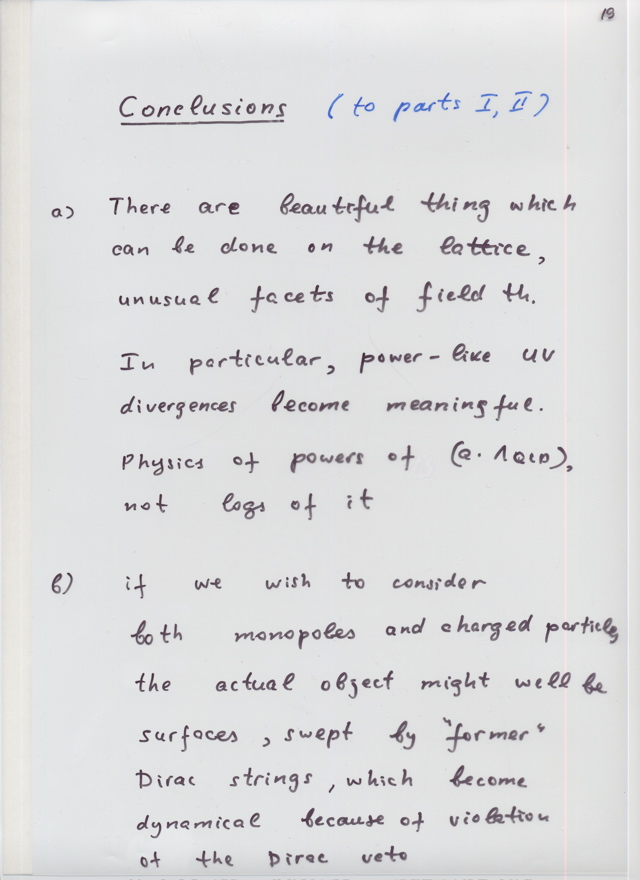 19
Conclusions (to parts I, II)
a) There are beautiful thing which
can be done on the lattice,
unusual facets of field th.
In particular, power-like UV
divergences become meaningful.
Physics of powers of (a·ΛQCD),
not logs of it
b) if we wish to consider
both monopoles and charged particles
the actual object might well be
surfaces, swept by "former"
Dirac strings, which become
dynamical because of violation
of the Dirac veto